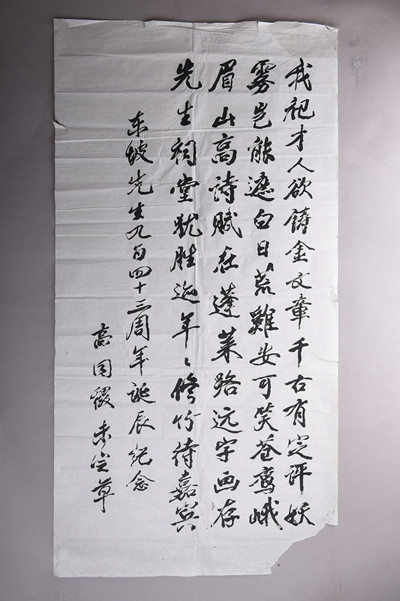 我祀才人欲铸金文章千古有定评妖
雾岂能遮白日若鸡安可笑苍鹰峨
眉山高诗赋在蓬莱路远字画存
先生祠堂犹胜迹年々修竹待嘉宾
东坡先生九百四十三周年诞辰纪念
高国 未定草